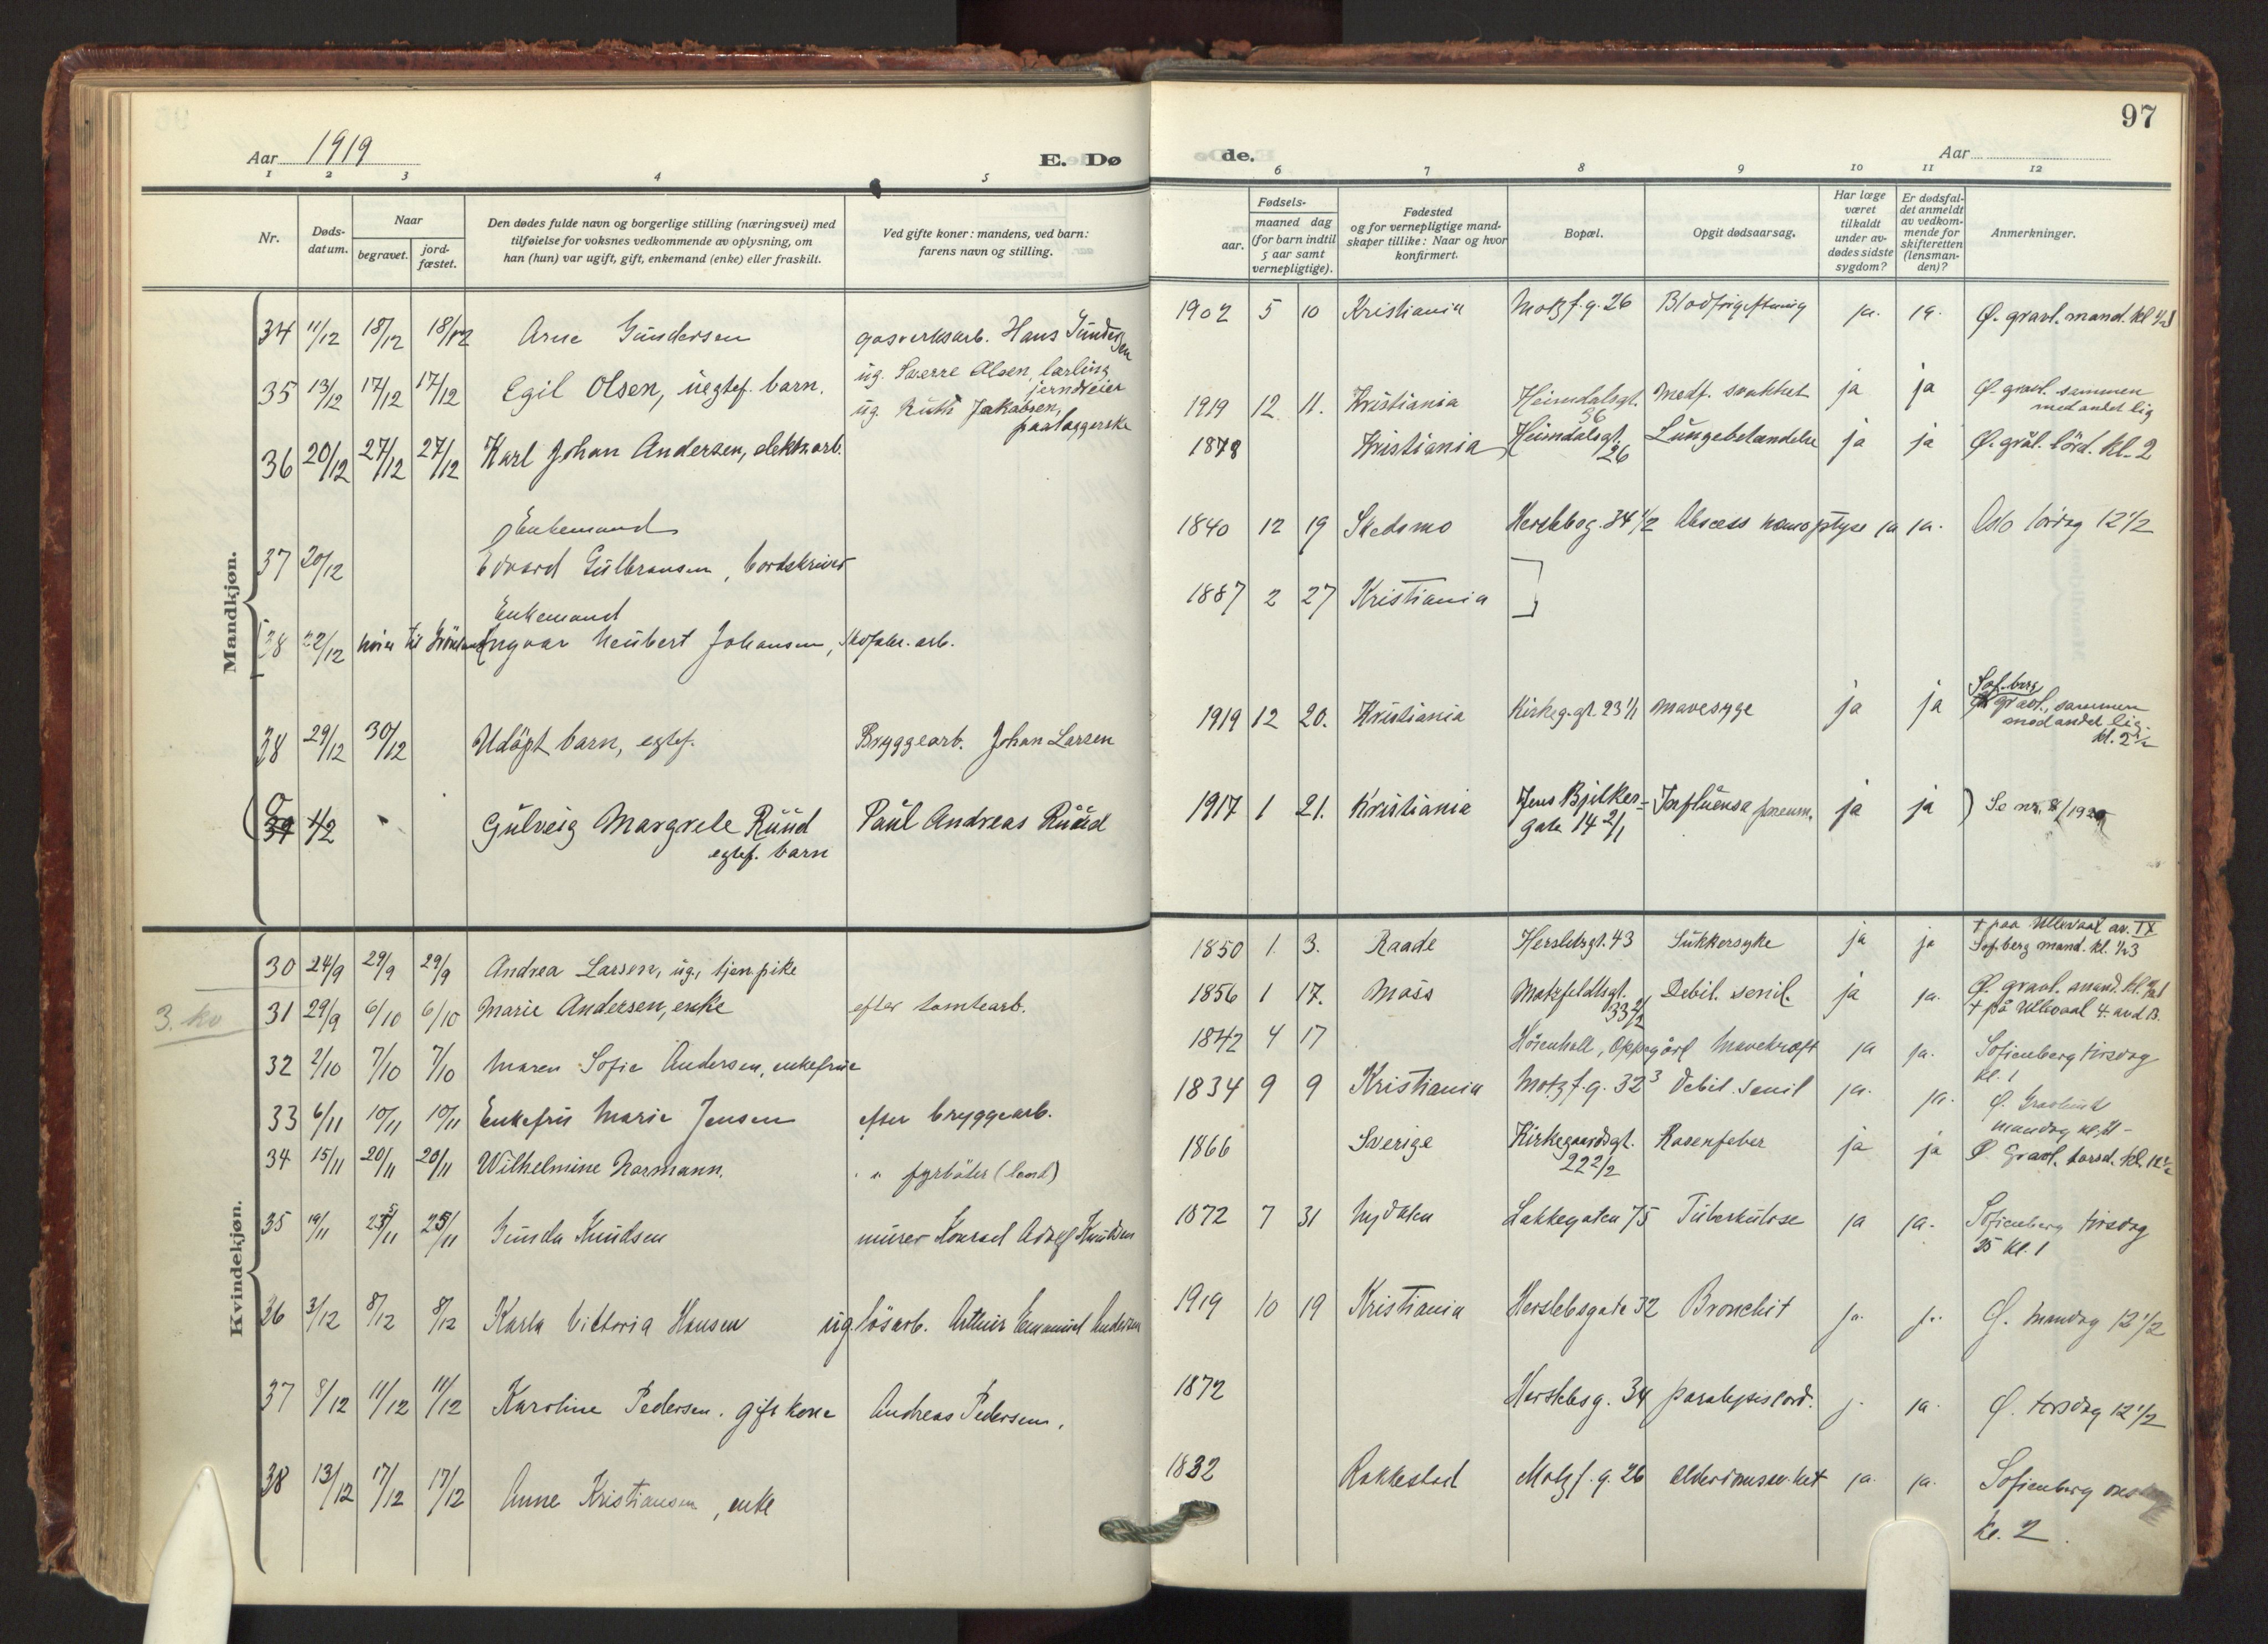 97
Aar 1919
E. Dø
de.
Aar
1 2 3 4 5
6 7 8 9 10 11 12
Nr.
Døds-
datum.
Naar
begravet.
jord-
fæstet.
Den dødes fulde navn og borgerlige stilling (næringsvei) med
tilføielse for voksnes vedkommende av oplysning, om
han (hun) var ugift, gift, enkemand (enke) eller fraskilt.
Ved gifte koner: mandens, ved barn:
farens navn og stilling.
Fødsels-
aar.
maaned dag
(for barn indtil
5 aar samt
vernepligtige).
Fødested
og for vernepligtige mand-
skaper tillike: Naar og hvor
konfirmert.
Bopæl.
Opgit dødsaarsag.
Har læge
været
tilkaldt
under av-
dødes sidste
sygdom?
Er dødsfal-
det anmeldt
av vedkom-
mende for
skifteretten
(lensman-
den)?
Anmerkninger.
Mandkjøn.
34 11/12 18/12 18/12 Arne Gundersen gasverksarb. Hans Gundersen 1902 5 10 Kristiania Motzf.g. 26 Blodforgiftning ja. ja. Ø. gravl. mand. kl
35 13/12 17/12 17/12 Egil Olsen, uegtef. barn. ug. Sverre Olsen, lærling
jerndreier
ug. Ruth Jakobsen,
paalæggerske
1919 12 11. Kristiania Heimdalsgt. 36 Medf. svakhet ja ja Ø. gravl. sammen
med andet lig
36 20/12 27/12 27/12 Karl Johan Andersen, elektr. arb. 1878 Kristiania Heimdalsgt. 26 Lungebetændelse ja ja Ø. grål. lörd. kl. 2
Enkemand
37 20/12 Edvard Gulbransen, bordskriver 1840 12 19 Skedsmo Herslebsg. 34 1/2 Abscess hæmoptyse ja ja. Oslo lördag 12 1/2
Enkemand
38 22/12 hörer til Grönland Ingvar Neubert Johansen, Skofabr. arb. 1887 2 27 Kristiania
38 29/12 30/12 Udöpt barn, egtef. Bryggearb. Johan Larsen 1919 12 20. Kristiania Kirkeg.gt. 23 1/1 Mavesyge ja ja Sof.berg
gravl., sammen
med andet lig.
kl. 2
39 1/2 Gulveig Margrete Ruud
egtef. barn
Paul Andreas Ruud 1917 1 21. Kristiania Jens Bjelkes-
gate 14 2/1 Influensa pneum. ja ja Se nr. 8/1920
Kvindekjøn.
3. kv
30 24/9 29/9 29/9 Andrea Larsen, ug., tjen.pike 1850 1. 3. Raade Herslebsgt. 43 Sukkersyke ja ja + paa Ullevaal av. IX
Sof.berg mand. kl. 1/2 3
31 29/9 6/10 6/10 Marie Andersen, enke efter tomtearb. 1856 1 17. Moss Motzfeldtsgt. 33 Debil. senil. ja ja. Ø. gravl. mand. kl.
+ på Ullevaal 4. avd B.
32 2/10 7/10 7/10 Maren Sofie Andersen, enkefrue 1842 4 17 Oppegård Mavekræft ja ja. Sofienberg tirsdag
kl. 1
33 6/11 10/11 10/11 Enkefru Marie Jensen efter bryggearb. 1834 9 9 Kristiania Motzf.g. 32 3 Debil. senil ja. ja. Ø. Gravlund
mandag kl.
34 15/11 20/11 20/11 Wilhelmine Normann. " " fyrböter (land) 1866 Sverige Kirkegaardsgt.
22 2/2 Rosenfeber ja ja Ø Gravl. torsd. kl. 12 1/2
35 19/11 25/11 25/11 Gunda Knudsen murer Konrad Adolf Knudsen 1872 7 31 Nydalen Lakkegaten 75 Tuberkulose ja ja. Sofienberg tirsdag
25 kl. 1
36 3/12 8/12 8/12 Karla Viktoria Hansen ug. lösarb. Arthur Emanuel Andersen 1919 10 19 Kristiania Herslebsgate 32 Bronchit ja. ja. Ø. mandag 12 1/2
37 8/12 11/12 11/12 Karoline Pedersen. gift kone Andreas Pedersen. 1872 Herslebsg. 34 paralysis cord. j. ja. Ø. torsdag 12 1/2
38 13/12 17/12 17/12 Anne Kristiansen, enke 1832 Rakkestad Motzf.g. 26 Alderdomssv.het ja. ja. Sofienberg
kl. 2.